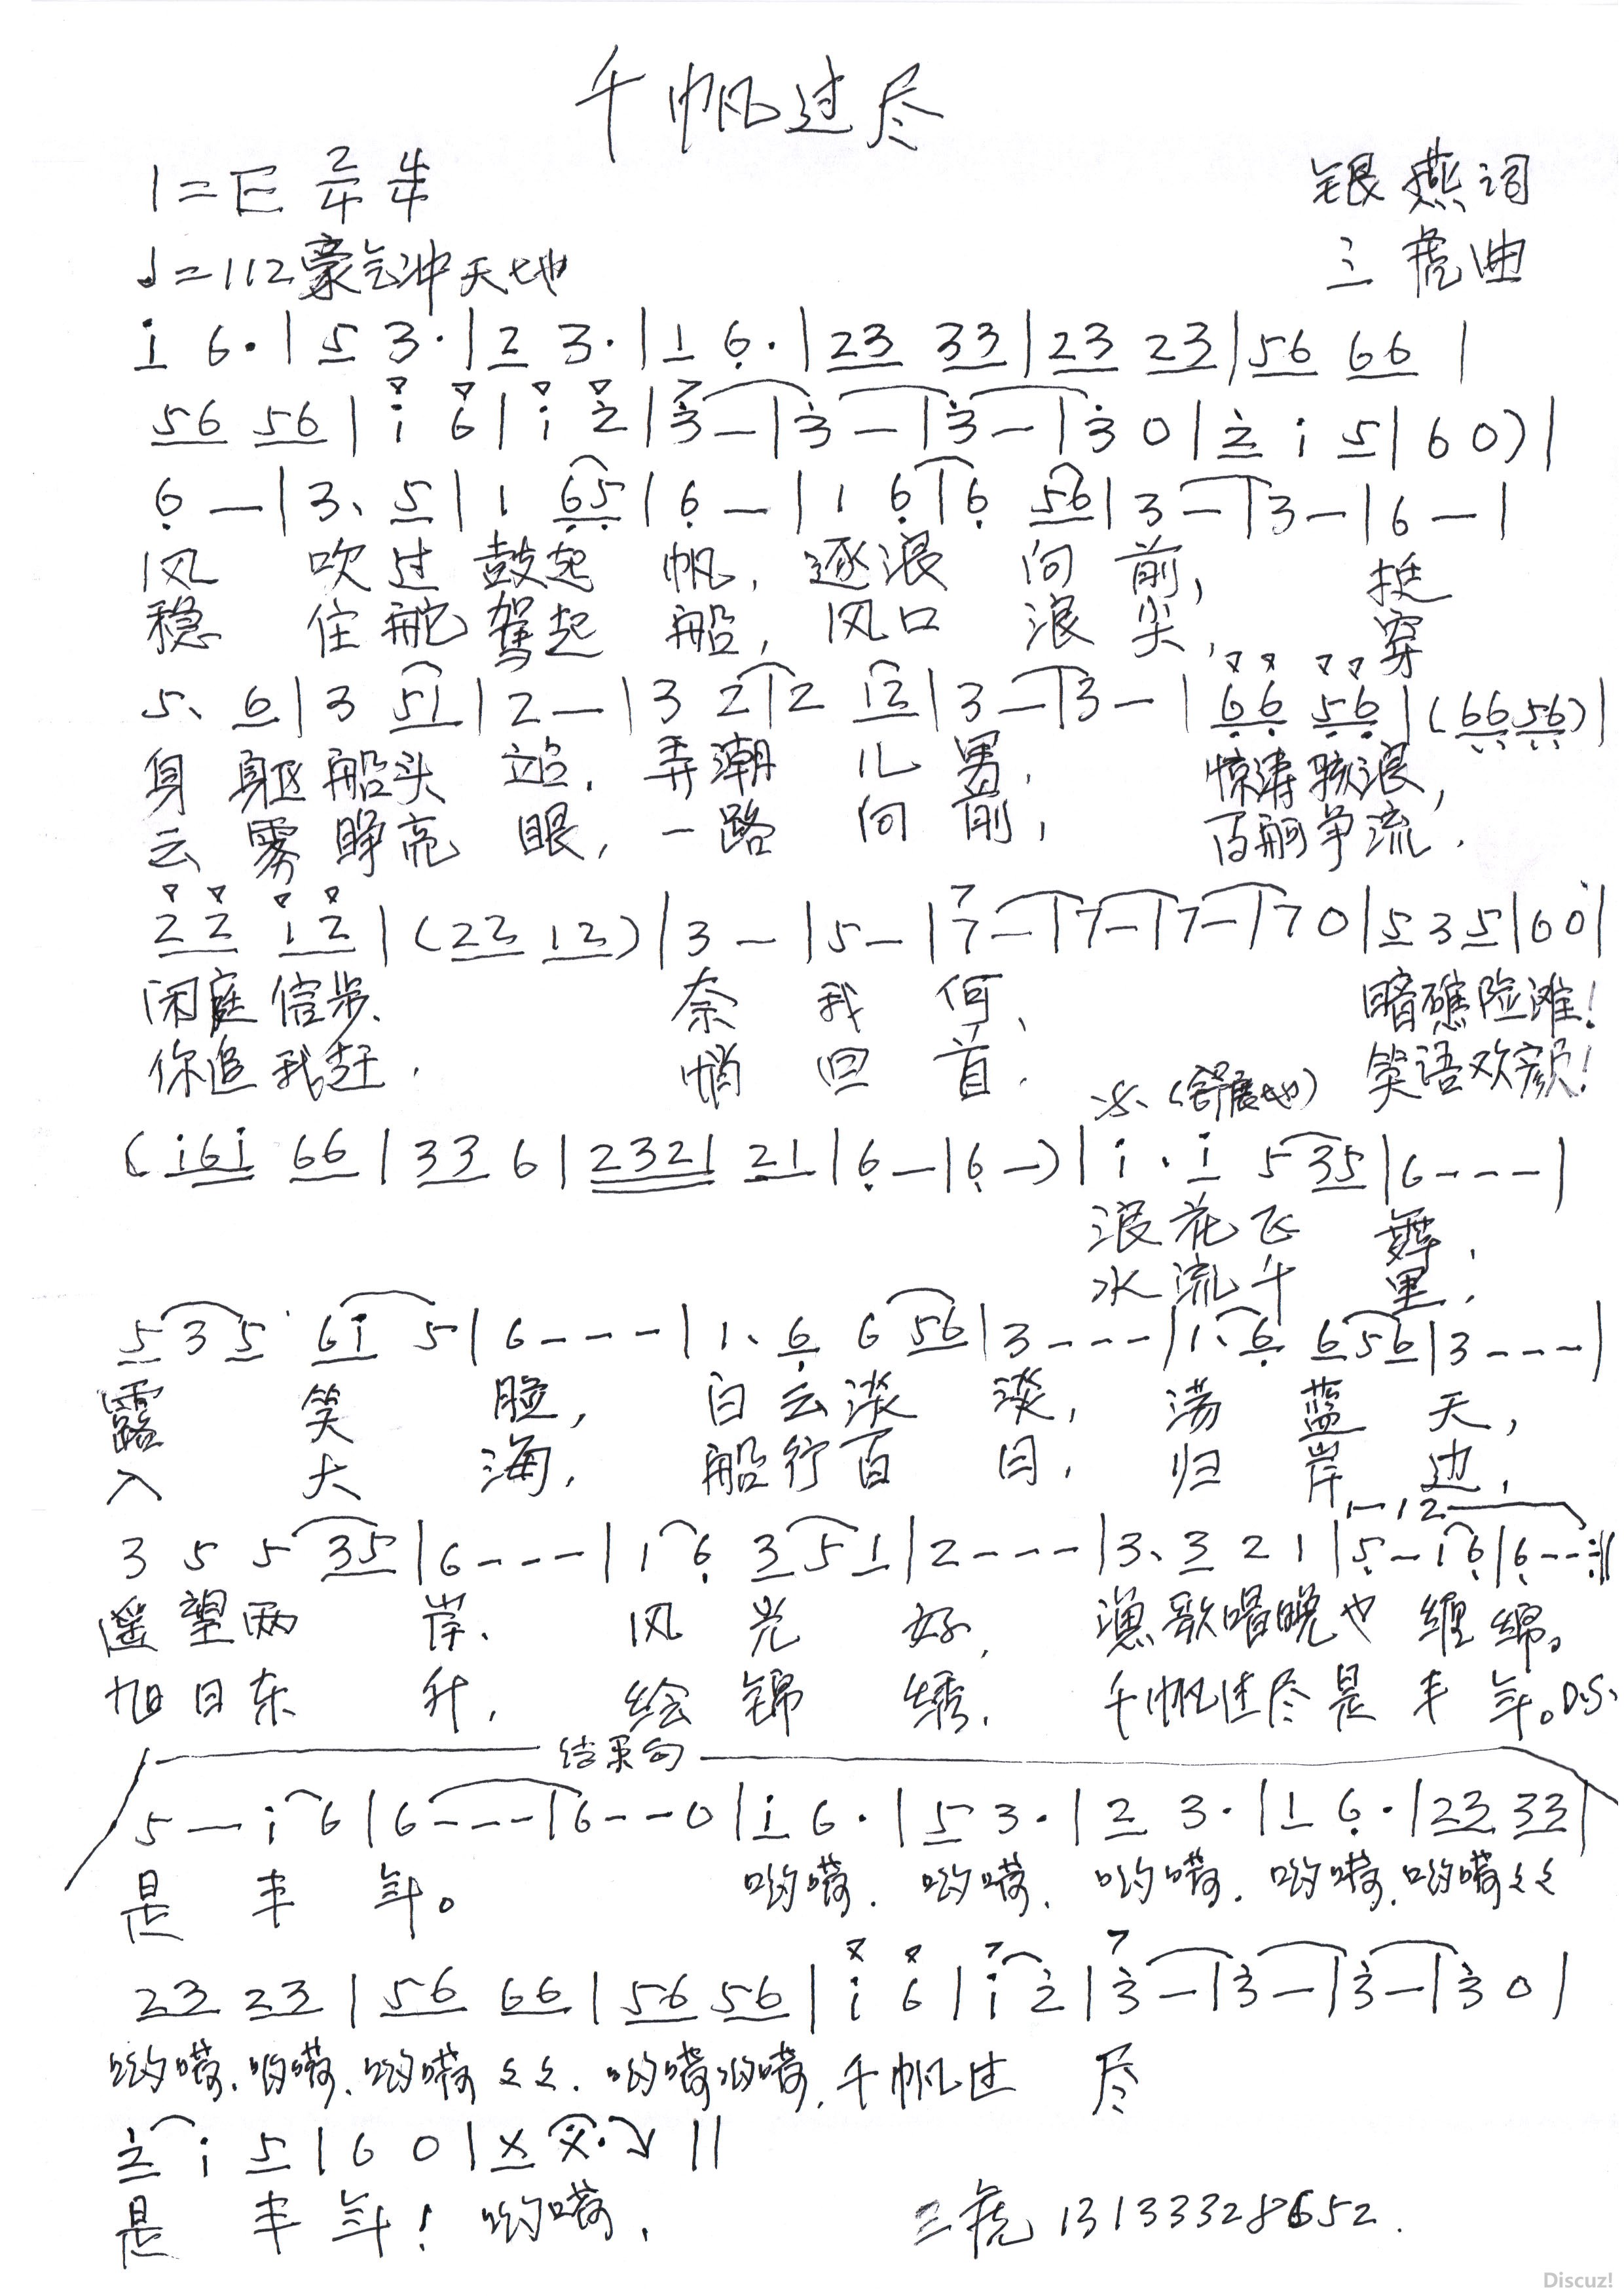 千帆过尽
1=E 2/4 4/4 银燕词
♩=112 豪气冲天地 三虎曲
i 6·|5 3·|2 3·|1 6·|23 33|23 23|56 66|
56 56|i 6|i 2|3 —|3 —|3 —|3 0|2 i 5|6 0)|
6 —|3、5|1 65|6 —|1 6|6 56|3 —|3 —|6 —|
风 吹过 鼓起 帆, 逐浪 向 前, 挺
稳 住舵 驾起 船, 风口 浪 尖, 穿
5、6|3 51|2 —|3 2|2 12|3 —|3 —|66 56|(66 56)|
身躯船头 立, 弄潮 儿 男, 惊涛骇浪,
云雾睁亮 眼, 一路 向 前, 百舸争流.
22 12|(22 12)|3 —|5 —|7 —|7 —|7 —|7 0|5 3 5|6 0|
闲庭信步、 奈 我 何、 暗礁险滩!
你追我赶. 悄 回 首. 笑语欢颜!
(舒展地)
(i6i 66|33 6|2321 21|6 —|6 —)|i · i 5 35|6 - - -|
浪花飞 舞,
水流千 里,
5 3 5 6i 5|6 - - -|1、6 6 56|3 - - -|1、6 6 5 6|3 - - -|
露 笑 脸, 白云淡 淡, 荡 蓝 天,
入 大 海, 船行百 日, 归 岸 边,
1 2
3 5 5 35|6 - - -|1 6 3 5 1|2 - - -|3、3 2 1|5 — 1 6|6 - - :||
遥望两 岸、 风 光 好, 渔歌唱晚也 缠 绵。
旭日东 升, 绘 锦 绣, 千帆过尽是 丰 年。D.S.
结束句
5 — i 6|6 - - -|6 - - 0|i 6·|5 3·|2 3·|1 6·|23 33|
是 丰 年。 哟嗬. 哟嗬. 哟嗬. 哟嗬. 哟嗬くく
23 23|56 66|56 56|i 6|i 2|3 —|3 —|3 —|3 0|
哟嗬. 哟嗬. 哟嗬くく. 哟嗬哟嗬. 千帆过 尽
2 i 5|6 0|X X· ↘||
是 丰 年! 哟嗬,
三虎 13133328652.
Discuz!